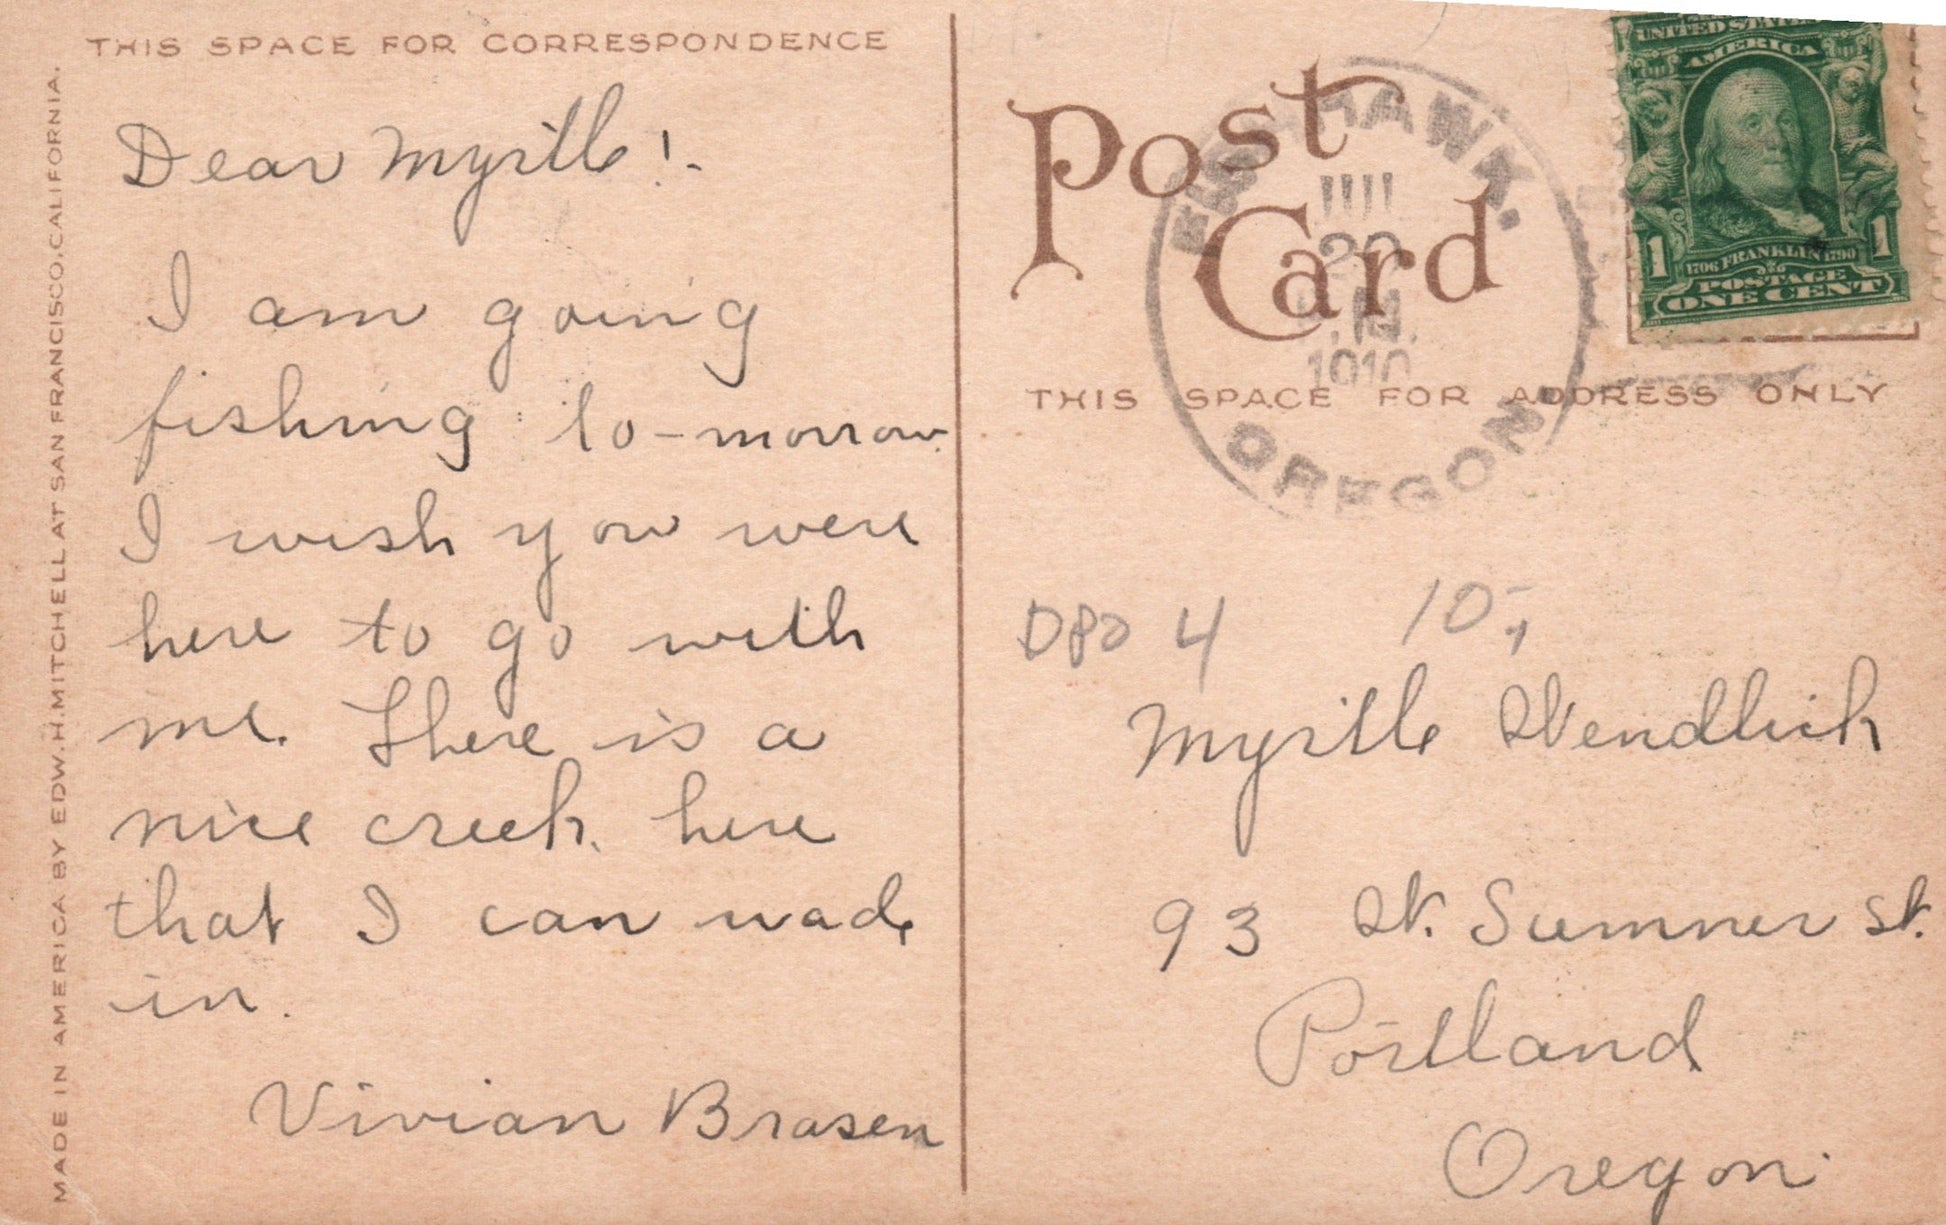 THIS SPACE FOR CORRESPONDENCE
MADE IN AMERICA BY EDW. H. MITCHELL AT SAN FRANCISCO, CALIFORNIA.
Dear Myrtle!
I am going
fishing to-morrow.
I wish you were
here to go with
me. There is a
nice creek here
that I can wade
in.
Vivian Brasen
Post
Card
HAWK.
20
1910
OREGON
UNITED STATES
AMERICA
1706 FRANKLIN 1790
POSTAGE
1 1
ONE CENT
THIS SPACE FOR ADDRESS ONLY
DPO 4 10-
Myrtle Wendlich
93 W. Sumner St.
Portland
Oregon.